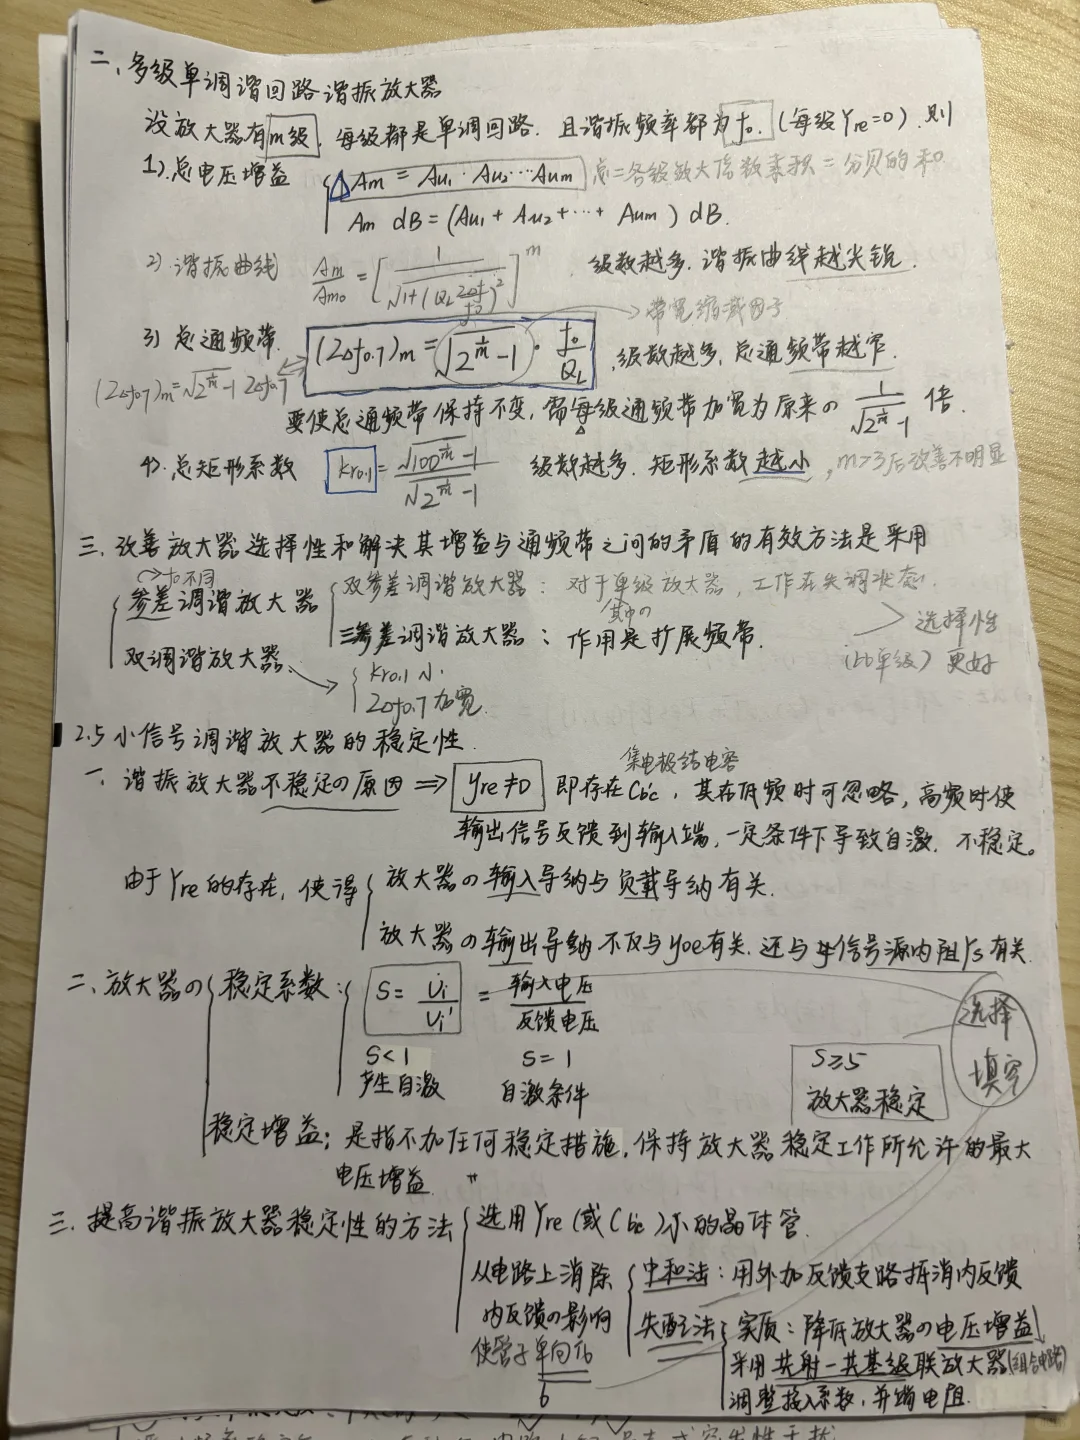 二、多级单调谐回路谐振放大器
设放大器有m级,每级都是单调回路.且谐振频率都为f₀.(每级Yre=0).则
1).总电压增益 { Am = Au₁·Au₂…Aum 总=各级放大倍数乘积=分贝的和
Am dB=(Au₁+Au₂+…+Aum) dB.
2).谐振曲线 Am/Am₀ = [1/√(1+(QL 2Δf/f₀)²)]^m 级数越多.谐振曲线越尖锐.
→带宽缩减因子
3)总通频带. (2Δf0.7)m = √(2^(1/m) -1) · f₀/QL .级数越多,总通频带越窄.
(2Δf0.7)m=√(2^(1/m) -1) 2Δf0.7
要使总通频带保持不变,需每级通频带加宽为原来の 1/√(2^(1/m) -1) 倍.
4).总矩形系数 kr0.1 = √(100^(1/m) -1)/√(2^(1/m) -1) 级数越多.矩形系数越小,m>3后改善不明显
三.改善放大器选择性和解决其增益与通频带之间的矛盾的有效方法是采用
→f₀不同
{ 参差调谐放大器 { 双参差调谐放大器:对于单级放大器,工作在失调状态.
其中の
三参差调谐放大器:作用是扩展频带.
> 选择性
(比单级)更好
双调谐放大器 → { kr0.1 小.
2Δf0.7 加宽.
2.5 小信号调谐放大器的稳定性.
集电极结电容
一.谐振放大器不稳定の原因 ⇒ yre≠0 即存在Cb'c,其在低频时可忽略,高频时使
输出信号反馈到输入端,一定条件下导致自激.不稳定。
由于Yre的存在,使得 { 放大器の输入导纳与负载导纳有关.
放大器の输出导纳不仅与yoe有关.还与信号源内阻Ys有关.
二、放大器の { 稳定系数:{ S= Ui/Ui' = 输入电压/反馈电压
选择
填空
S<1 S=1 S≥5
产生自激 自激条件 放大器稳定
稳定增益:是指不加任何稳定措施.保持放大器稳定工作所允许的最大
电压增益.
三.提高谐振放大器稳定性的方法 { 选用Yre(或Cb'c)小的晶体管.
从电路上消除 { 中和法:用外加反馈支路抵消内反馈
内反馈の影响 失配法 { 实质:降低放大器の电压增益
使管子单向化 采用共射-共基级联放大器(组合电路)
调整接入系数,并端电阻.